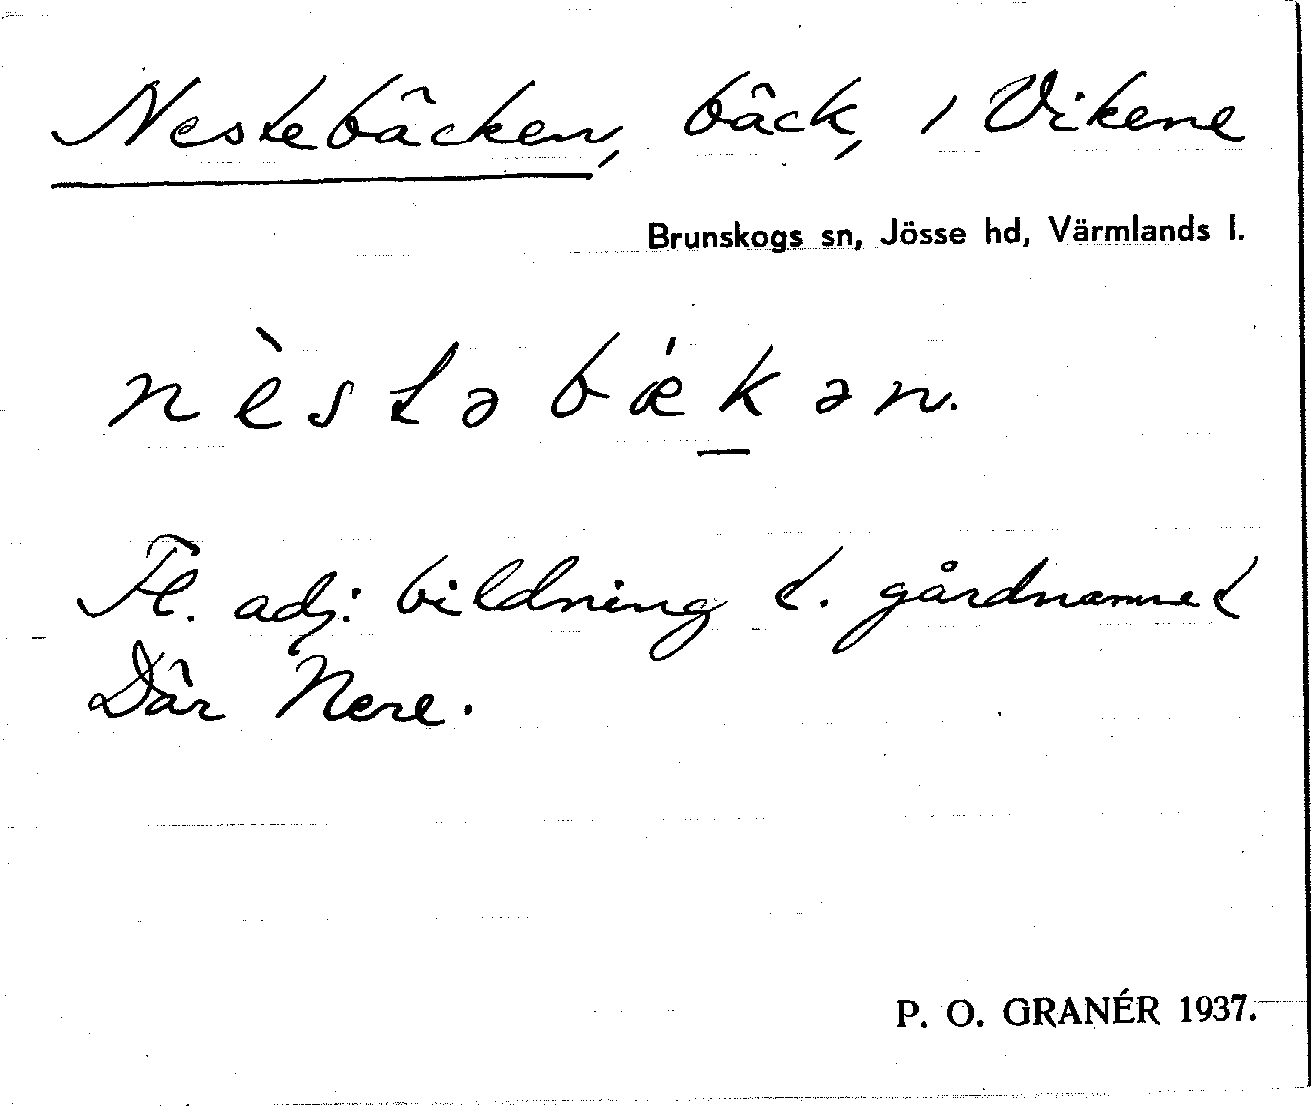 Nestebäcken, bäck, i Vikene
Brunskogs sn, Jösse hd, Värmlands l.
nèstəbǽk̲ən.
Fl. adj: bildning t. gårdnamnet
Där Nere.
P. O. GRANÉR 1937.